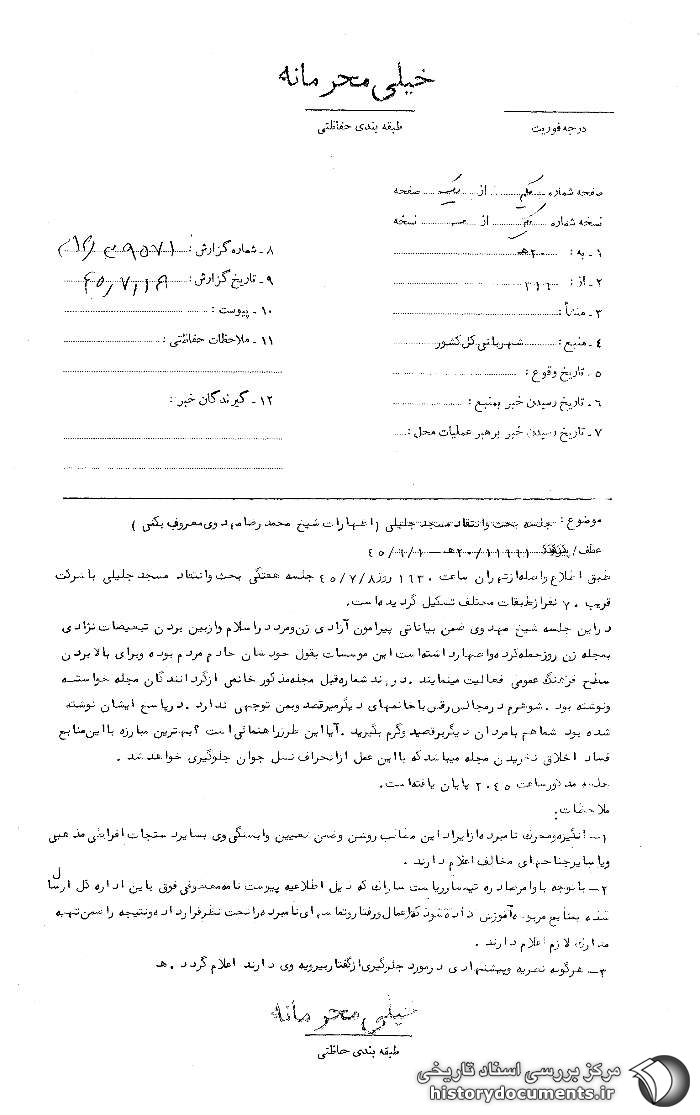 خیلی محرمانه
طبقه بندی حفاظتی
درجه فوریت
صفحه شماره یک از یک صفحه
نسخه شماره از نسخه
۱ـ به : ۲۰هـ
۲ـ از : ۳۱۶
۳ـ منشأ :
۴ـ منبع : شهربانی کل کشور
۵ـ تاریخ وقوع :
۶ـ تاریخ رسیدن خبر بمنبع :
۷ـ تاریخ رسیدن خبر برهبر عملیات محل :
۸ـ شماره گزارش :
۹ـ تاریخ گزارش : ۴۵/۷/۱۸
۱۰ـ پیوست :
۱۱ـ ملاحظات حفاظتی :
۱۲ـ گیرندگان خبر :
موضوع : جلسه بحث وانتقاد مسجد جلیلی (اظهارات شیخ محمد رضا مهدوی معروف بکنی )
عطف/ ۲۰/۱۱۶۶۱هـ ـ ۴۵/۶/۱
طبق اطلاع واصله از تهران ساعت ۱۹۳۰ روز ۴۵/۷/۸ جلسه هفتگی بحث وانتقاد مسجد جلیلی با شرکت
قریب ۷۰ نفر از طبقات مختلف تشکیل گردیده است.
در این جلسه شیخ مهدوی ضمن بیاناتی پیرامون آزادی زن و مرد در اسلام و از بین بردن تبعیضات نژادی
بمجله زن روز حمله کرده و اظهار داشته است این موسسات بقول خودشان خادم مردم بوده و برای بالا بردن
سطح فرهنگ عمومی فعالیت مینمایند . در چند شماره قبل مجله مذکور خانمی از گردانندگان مجله خواسته
و نوشته بود . شوهرم در مجالس رقص با خانمهای دیگر میرقصد و بمن توجهی ندارد . در پاسخ ایشان نوشته
شده بود شما هم با مردان دیگر برقصید و گرم بگیرید . آیا این طرز راهنمائی است ؟ بهترین مبارزه با این منابع
فساد اخلاق نخریدن مجله میباشد که با این عمل از انحراف نسل جوان جلوگیری خواهد شد .
جلسه مذکور ساعت ۲۰۴۵ پایان یافته است.
ملاحظات:
۱ـ انگیزه و محرک نامبرده از ایراد این مطالب روشن و ضمن تعیین وابستگی وی بسایر دستجات افراطی مذهبی
و یا سایر جناحهای مخالف اعلام دارند .
۲ـ با توجه باوامر صادره تیمسار ریاست ساواک که ذیل اطلاعیه پیوست نامه معطوفی فوق باین اداره کل ارسال
شده بمنابع مربوطه آموزش داده شود که اعمال و رفتار و تماسهای نامبرده را تحت نظر قرار داده و نتیجه را ضمن تهیه
مدارک لازم اعلام دارند .
۳ـ هرگونه نظریه و پیشنهادی در مورد جلوگیری از گفتار بیرویه وی دارند اعلام گردد . هـ
خیلی محرمانه
طبقه بندی حفاظتی
مرکز بررسی اسناد تاریخی
historydocuments.ir